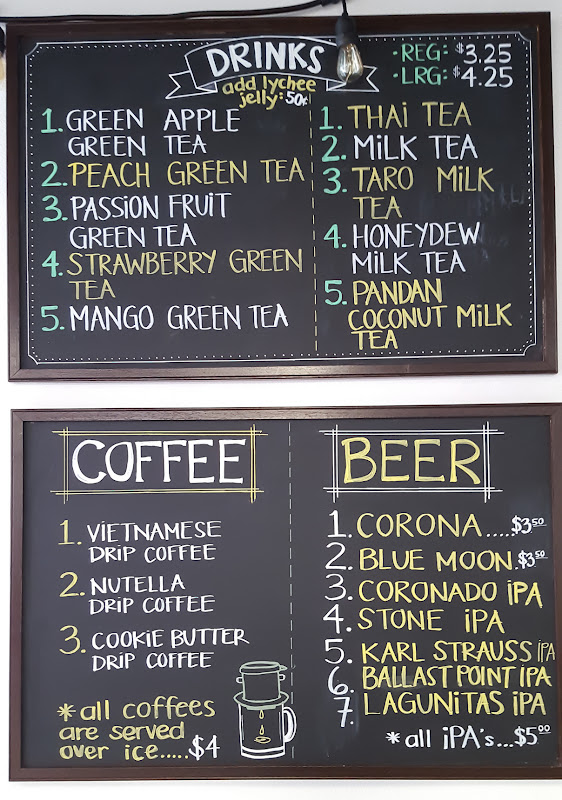 DRINKS
add lychee
jelly: 50¢
• REG: $3.25
• LRG: $4.25
1. GREEN APPLE
GREEN TEA
2. PEACH GREEN TEA
3. PASSION FRUIT
GREEN TEA
4. STRAWBERRY GREEN
TEA
5. MANGO GREEN TEA
1. THAI TEA
2. MILK TEA
3. TARO MILK
TEA
4. HONEYDEW
MILK TEA
5. PANDAN
COCONUT MILK
TEA
COFFEE
1. VIETNAMESE
DRIP COFFEE
2. NUTELLA
DRIP COFFEE
3. COOKIE BUTTER
DRIP COFFEE
* all coffees
are served
over ice.....$4
BEER
1. CORONA.....$3.50
2. BLUE MOON.$3.50
3. CORONADO IPA
4. STONE IPA
5. KARL STRAUSS IPA
6. BALLAST POINT IPA
7. LAGUNITAS IPA
* all IPA's...$5.00